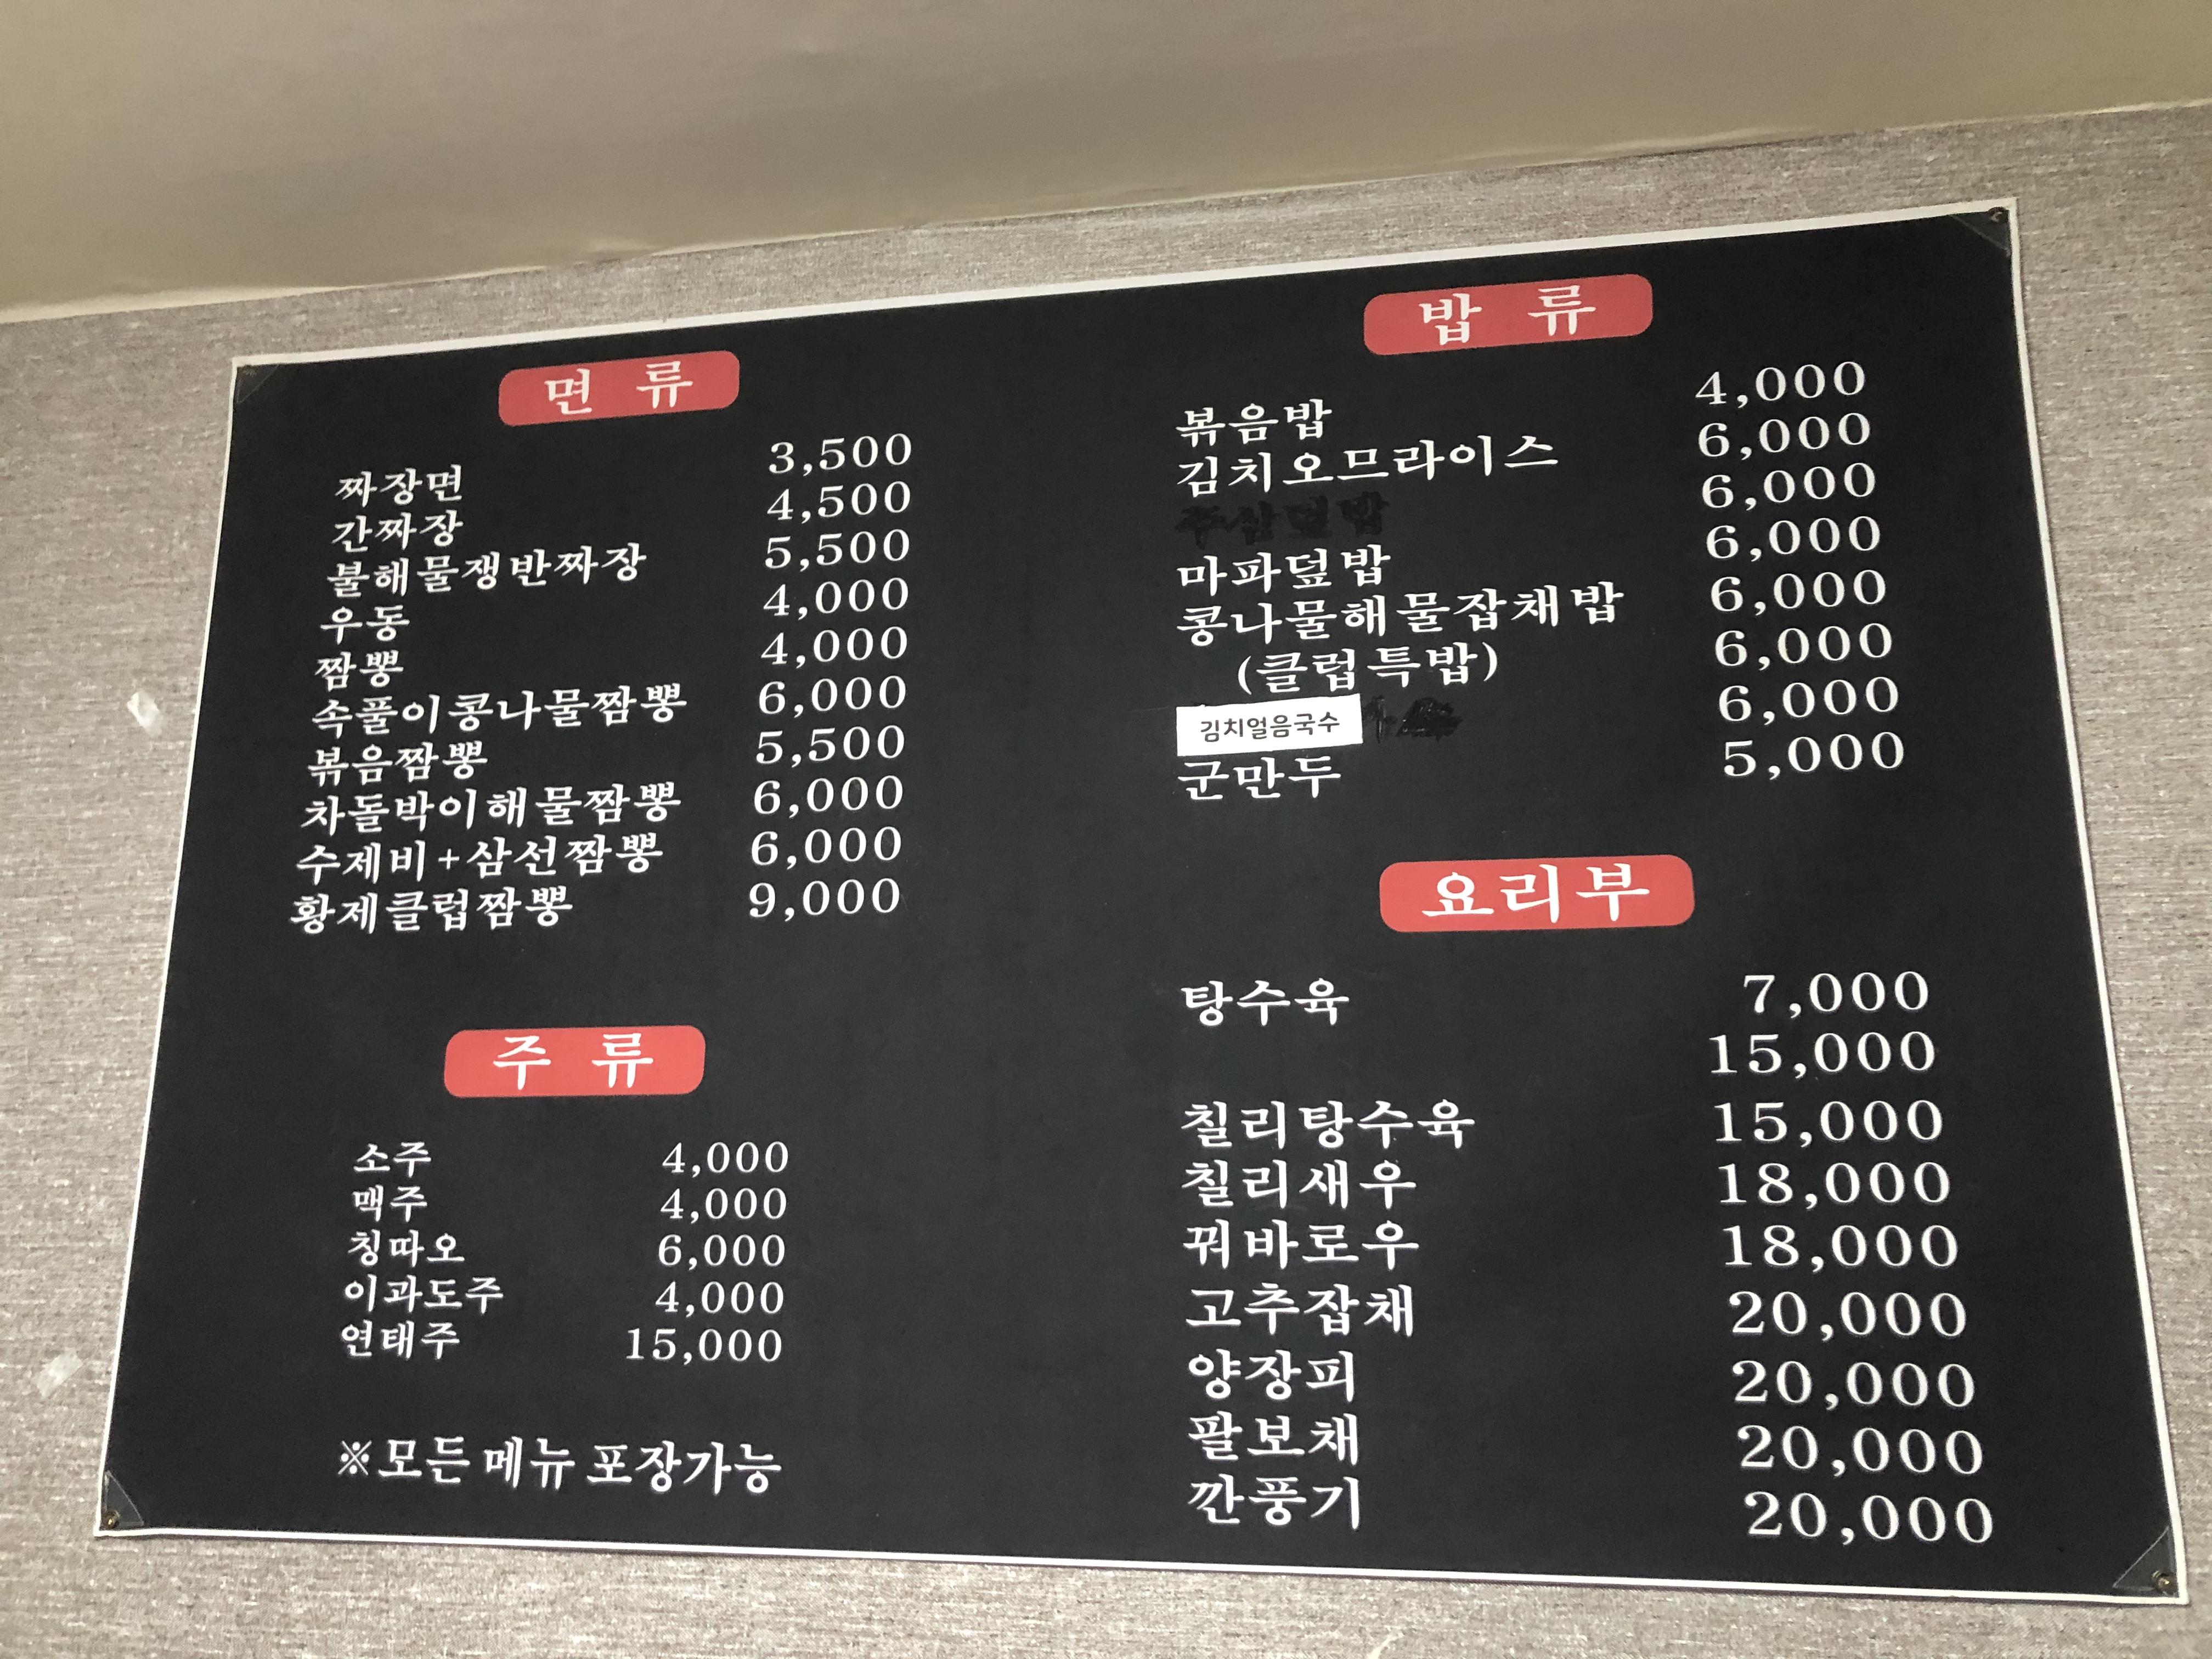 면 류
짜장면 3,500
간짜장 4,500
불해물쟁반짜장 5,500
우동 4,000
짬뽕 4,000
속풀이콩나물짬뽕 6,000
볶음짬뽕 5,500
차돌박이해물짬뽕 6,000
수제비+삼선짬뽕 6,000
황제클럽짬뽕 9,000
주 류
소주 4,000
맥주 4,000
칭따오 6,000
이과도주 4,000
연태주 15,000
※모든 메뉴 포장가능
밥 류
볶음밥 4,000
김치오므라이스 6,000
6,000
마파덮밥 6,000
콩나물해물잡채밥 6,000
(클럽특밥) 6,000
김치얼음국수 6,000
군만두 5,000
요리부
탕수육 7,000
15,000
칠리탕수육 15,000
칠리새우 18,000
꿔바로우 18,000
고추잡채 20,000
양장피 20,000
팔보채 20,000
깐풍기 20,000